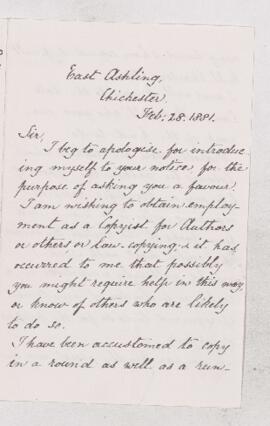 East Ashling,
Chichester.
Feb: 28. 1881.
Sir,
I beg to apologise for introduc-
ing myself to your notice for the
purpose of asking you a favour.
I am wishing to obtain employ-
ment as a Copyist for Authors
or others or Law-copying & it has
occurred to me that possibly
you might require help in this way,
or know of others who are likely
to do so.
I have been accustomed to copy
in a round as well as a run-